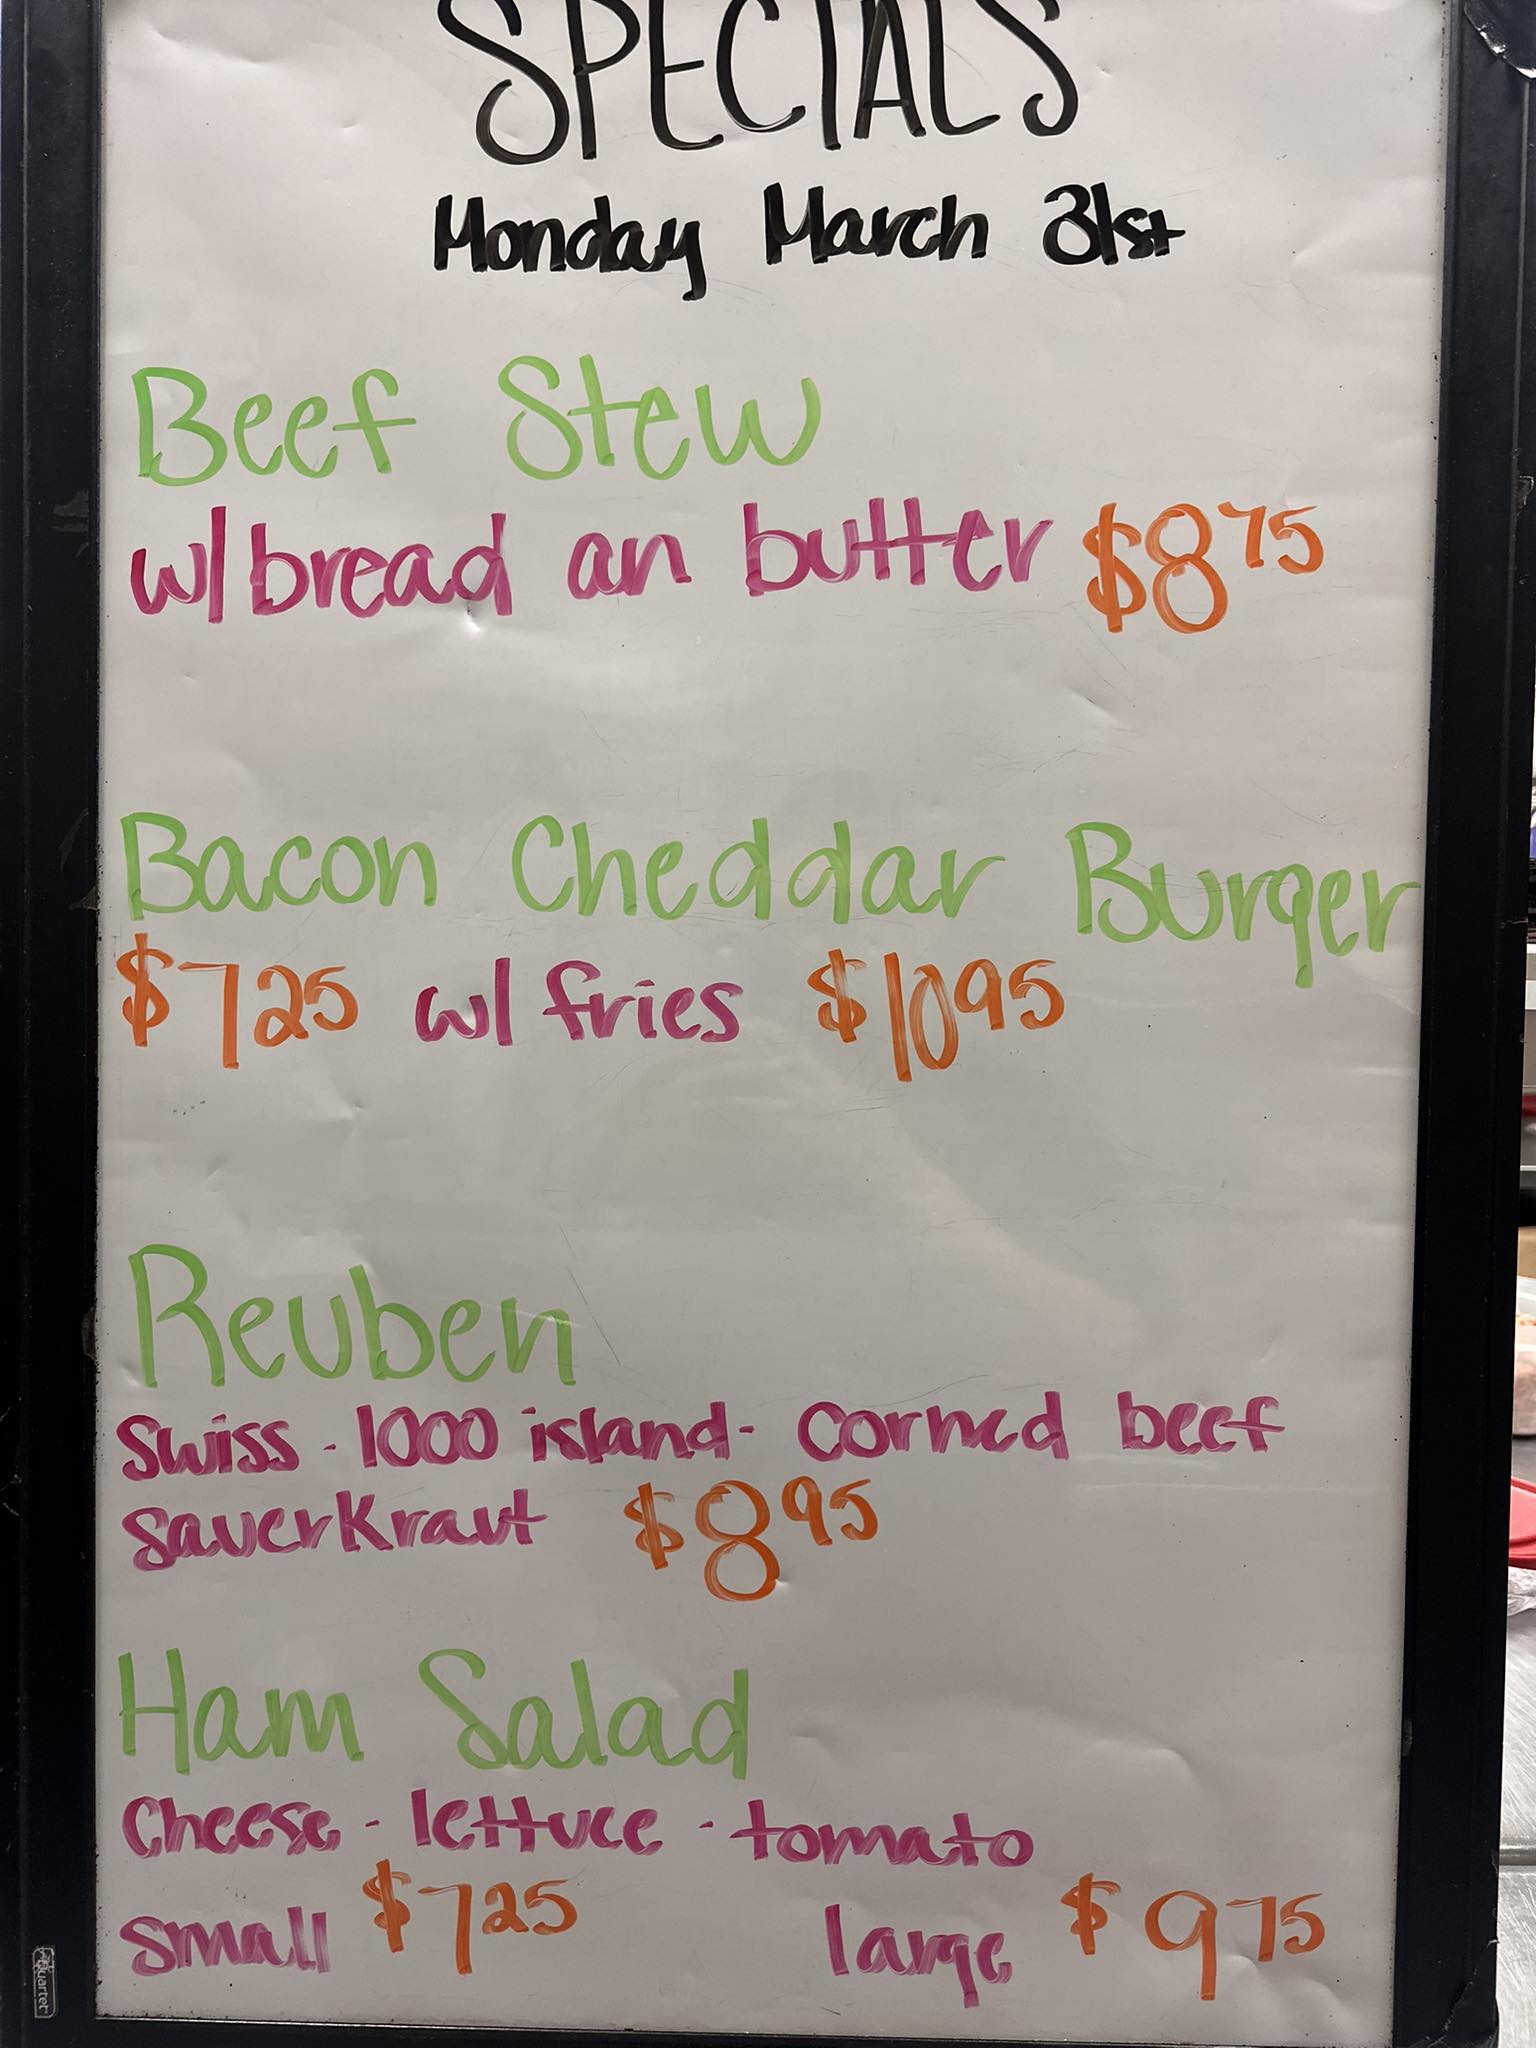 SPECIALS
Monday March 31st
Beef Stew
w/bread an butter $8 75
Bacon Cheddar Burger
$7 25 w/ fries $10 95
Reuben
Swiss - 1000 island - corned beef
sauerkraut $8 95
Ham Salad
Cheese - lettuce - tomato
small $7 25 large $9 75
Quartet